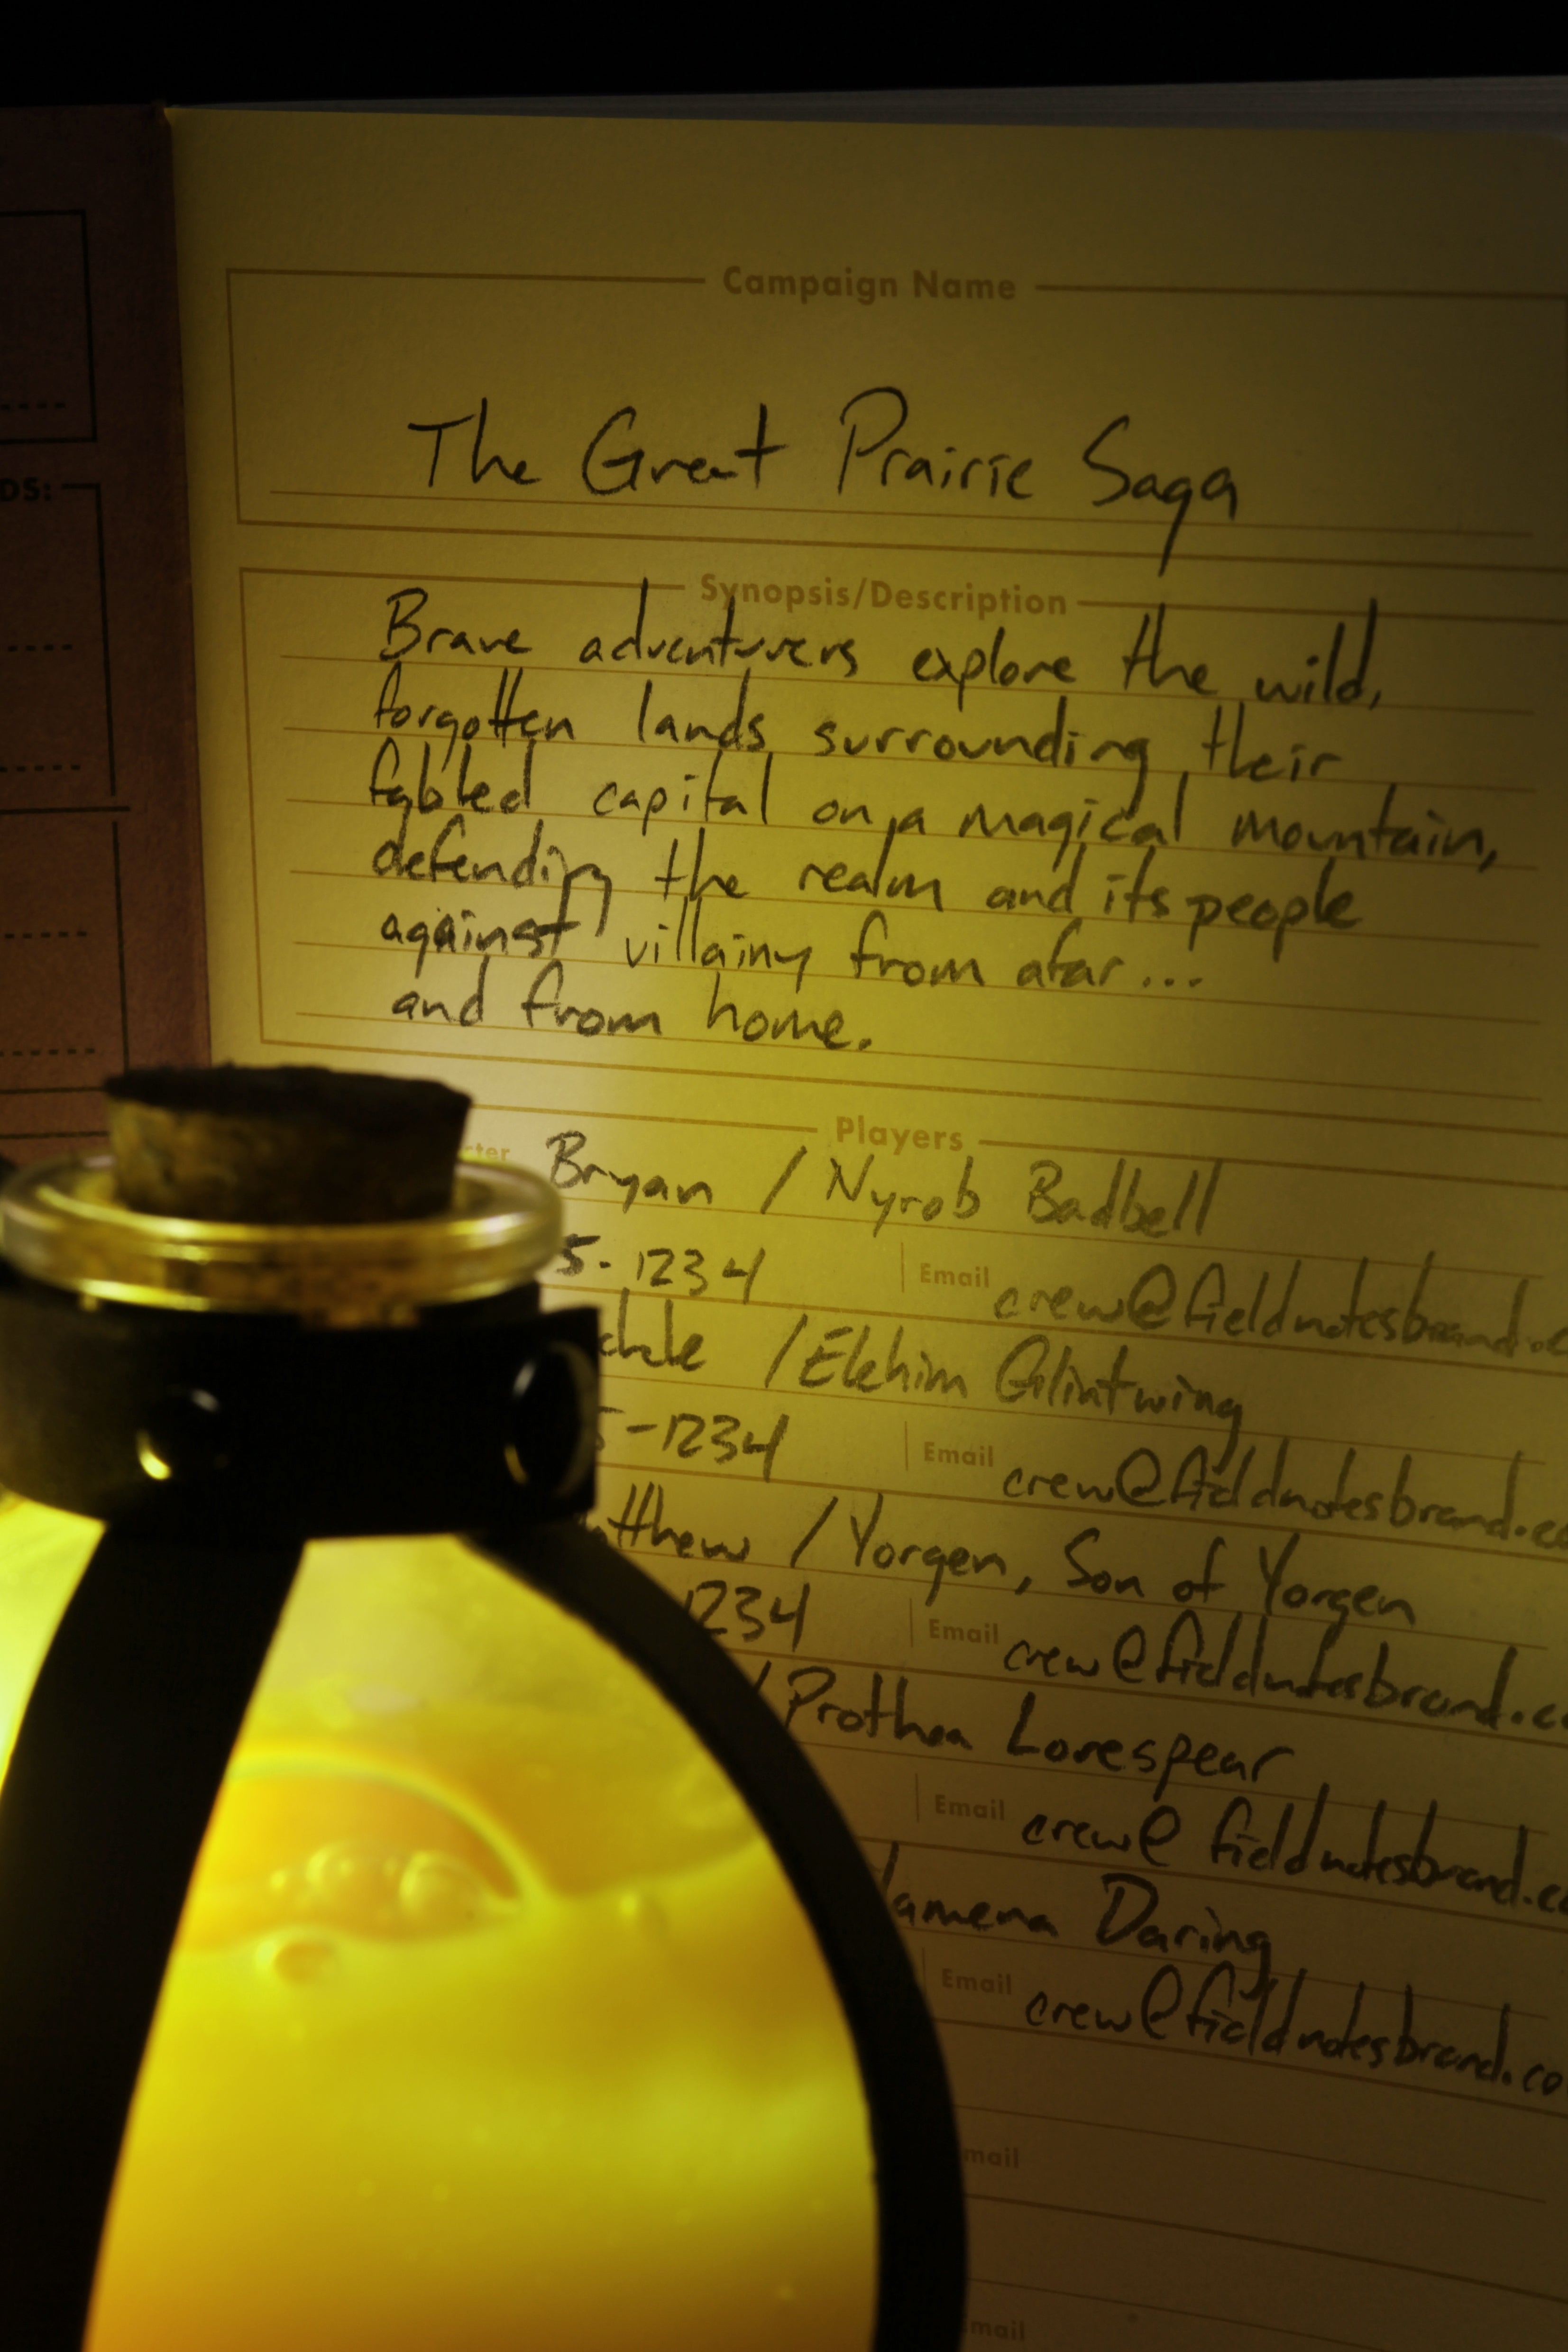 DS:
Campaign Name
The Great Prairie Saga
Synopsis/Description
Brave adventurers explore the wild,
forgotten lands surrounding their
fabled capital on a magical mountain,
defending the realm and its people
against villainy from afar...
and from home.
Players
Bryan / Nyrob Badbell
5-1234 Email crew@fieldnotesbrand.c
/ Elehim Glintwing
5-1234 Email crew@fieldnotesbrand.co
tthew / Yorgen, Son of Yorgen
1234 Email crew@fieldnotesbrand.co
/ Prothea Lorespear
Email crew@fieldnotesbrand.co
amena Daring
Email crew@fieldnotesbrand.co
mail
mail